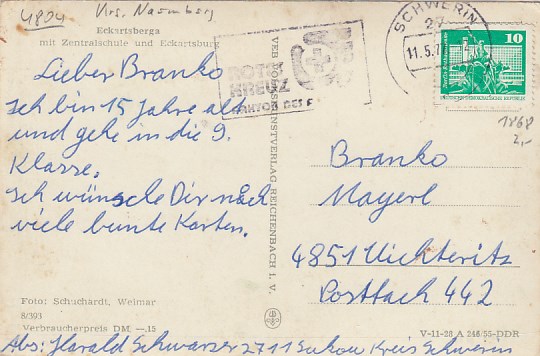 4804 Krs. Naumburg
Eckartsberga
mit Zentralschule und Eckartsburg
Lieber Branko
Ich bin 15 Jahre alt
und gehe in die 9.
Klasse.
Ich wünsche Dir noch
viele bunte Karten.
Foto: Schuchardt, Weimar
8/393
Verbraucherpreis DM —.15
Abs: Harald Schwarzer 2711 Sukow Kreis Schwerin
VEB VOLKSKUNSTVERLAG REICHENBACH I. V.
ROTES
KREUZ
FAKTOR DES F
SCHWERIN
27
11.5.7
10
1868
2,-
Branko
Mayerl
4851 Uichteritz
Postfach 442
V-11-28 A 246/55-DDR